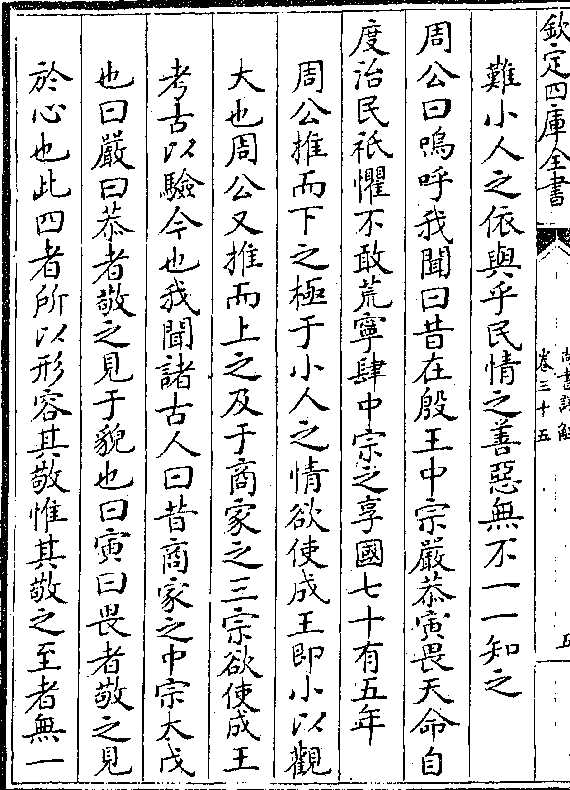 欽定四庫全書
尚書詳解
卷三十五
五
難小人之依與乎民情之善惡無不一一知之
周公曰嗚呼我聞曰昔在殷王中宗嚴恭寅畏天命自
度治民祇懼不敢荒寧肆中宗之享國七十有五年
周公推而下之極于小人之情欲使成王即小以觀
大也周公又推而上之及于商家之三宗欲使成王
考古以驗今也我聞諸古人曰昔商家之中宗太戊
也曰嚴曰恭者敬之見于貌也曰寅曰畏者敬之見
於心也此四者所以形容其敬惟其敬之至者無一